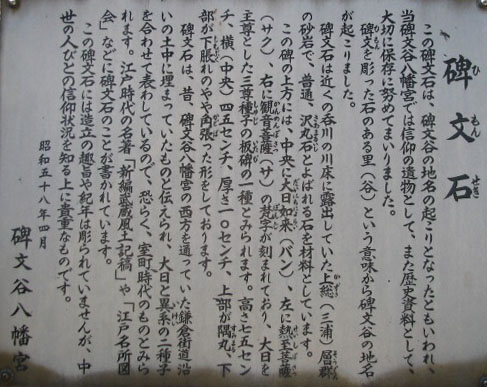 碑文石
ひ
せき
この碑文石は、碑文谷の地名の起こりとなったともいわれ、
当碑文谷八幡宮では信仰の遺物として、また歴史資料として、
大切に保存に努めてまいりました。
碑文を彫った石のある里（谷）という意味から碑文谷の地名
が起こりました。
碑文石は近くの呑川の川床に露出していた上総（三浦）層群
の砂岩で、普通、沢丸石とよばれる石を材料としています。
この碑の上方には、中央に大日如来（バン）、左に熱至菩薩
（サク）、右に観音菩薩（サ）の梵字が刻まれており、大日を
主尊とした三尊種子の板碑の一種とみられます。高さ七五セン
チ、横（中央）四五センチ、厚さ一〇センチ、上部が隅丸、下
部が下脹れのやや角張った形をしております。
碑文石は、昔、碑文谷八幡宮の西方を通っていた鎌倉街道沿
いの土中に埋まっていたものと伝えられ、大日と異系の二種子
を合わせて表わしているので、恐らく、室町時代のものとみら
れます。江戸時代の名著「新編武蔵風土記稿」や「江戸名所図
会」などに碑文石のことが書かれています。
この碑文石には造立の趣旨や紀年は彫られていませんが、中
世の人びとの信仰状況を知る上に貴重なものです。
昭和五十八年四月
碑文谷八幡宮